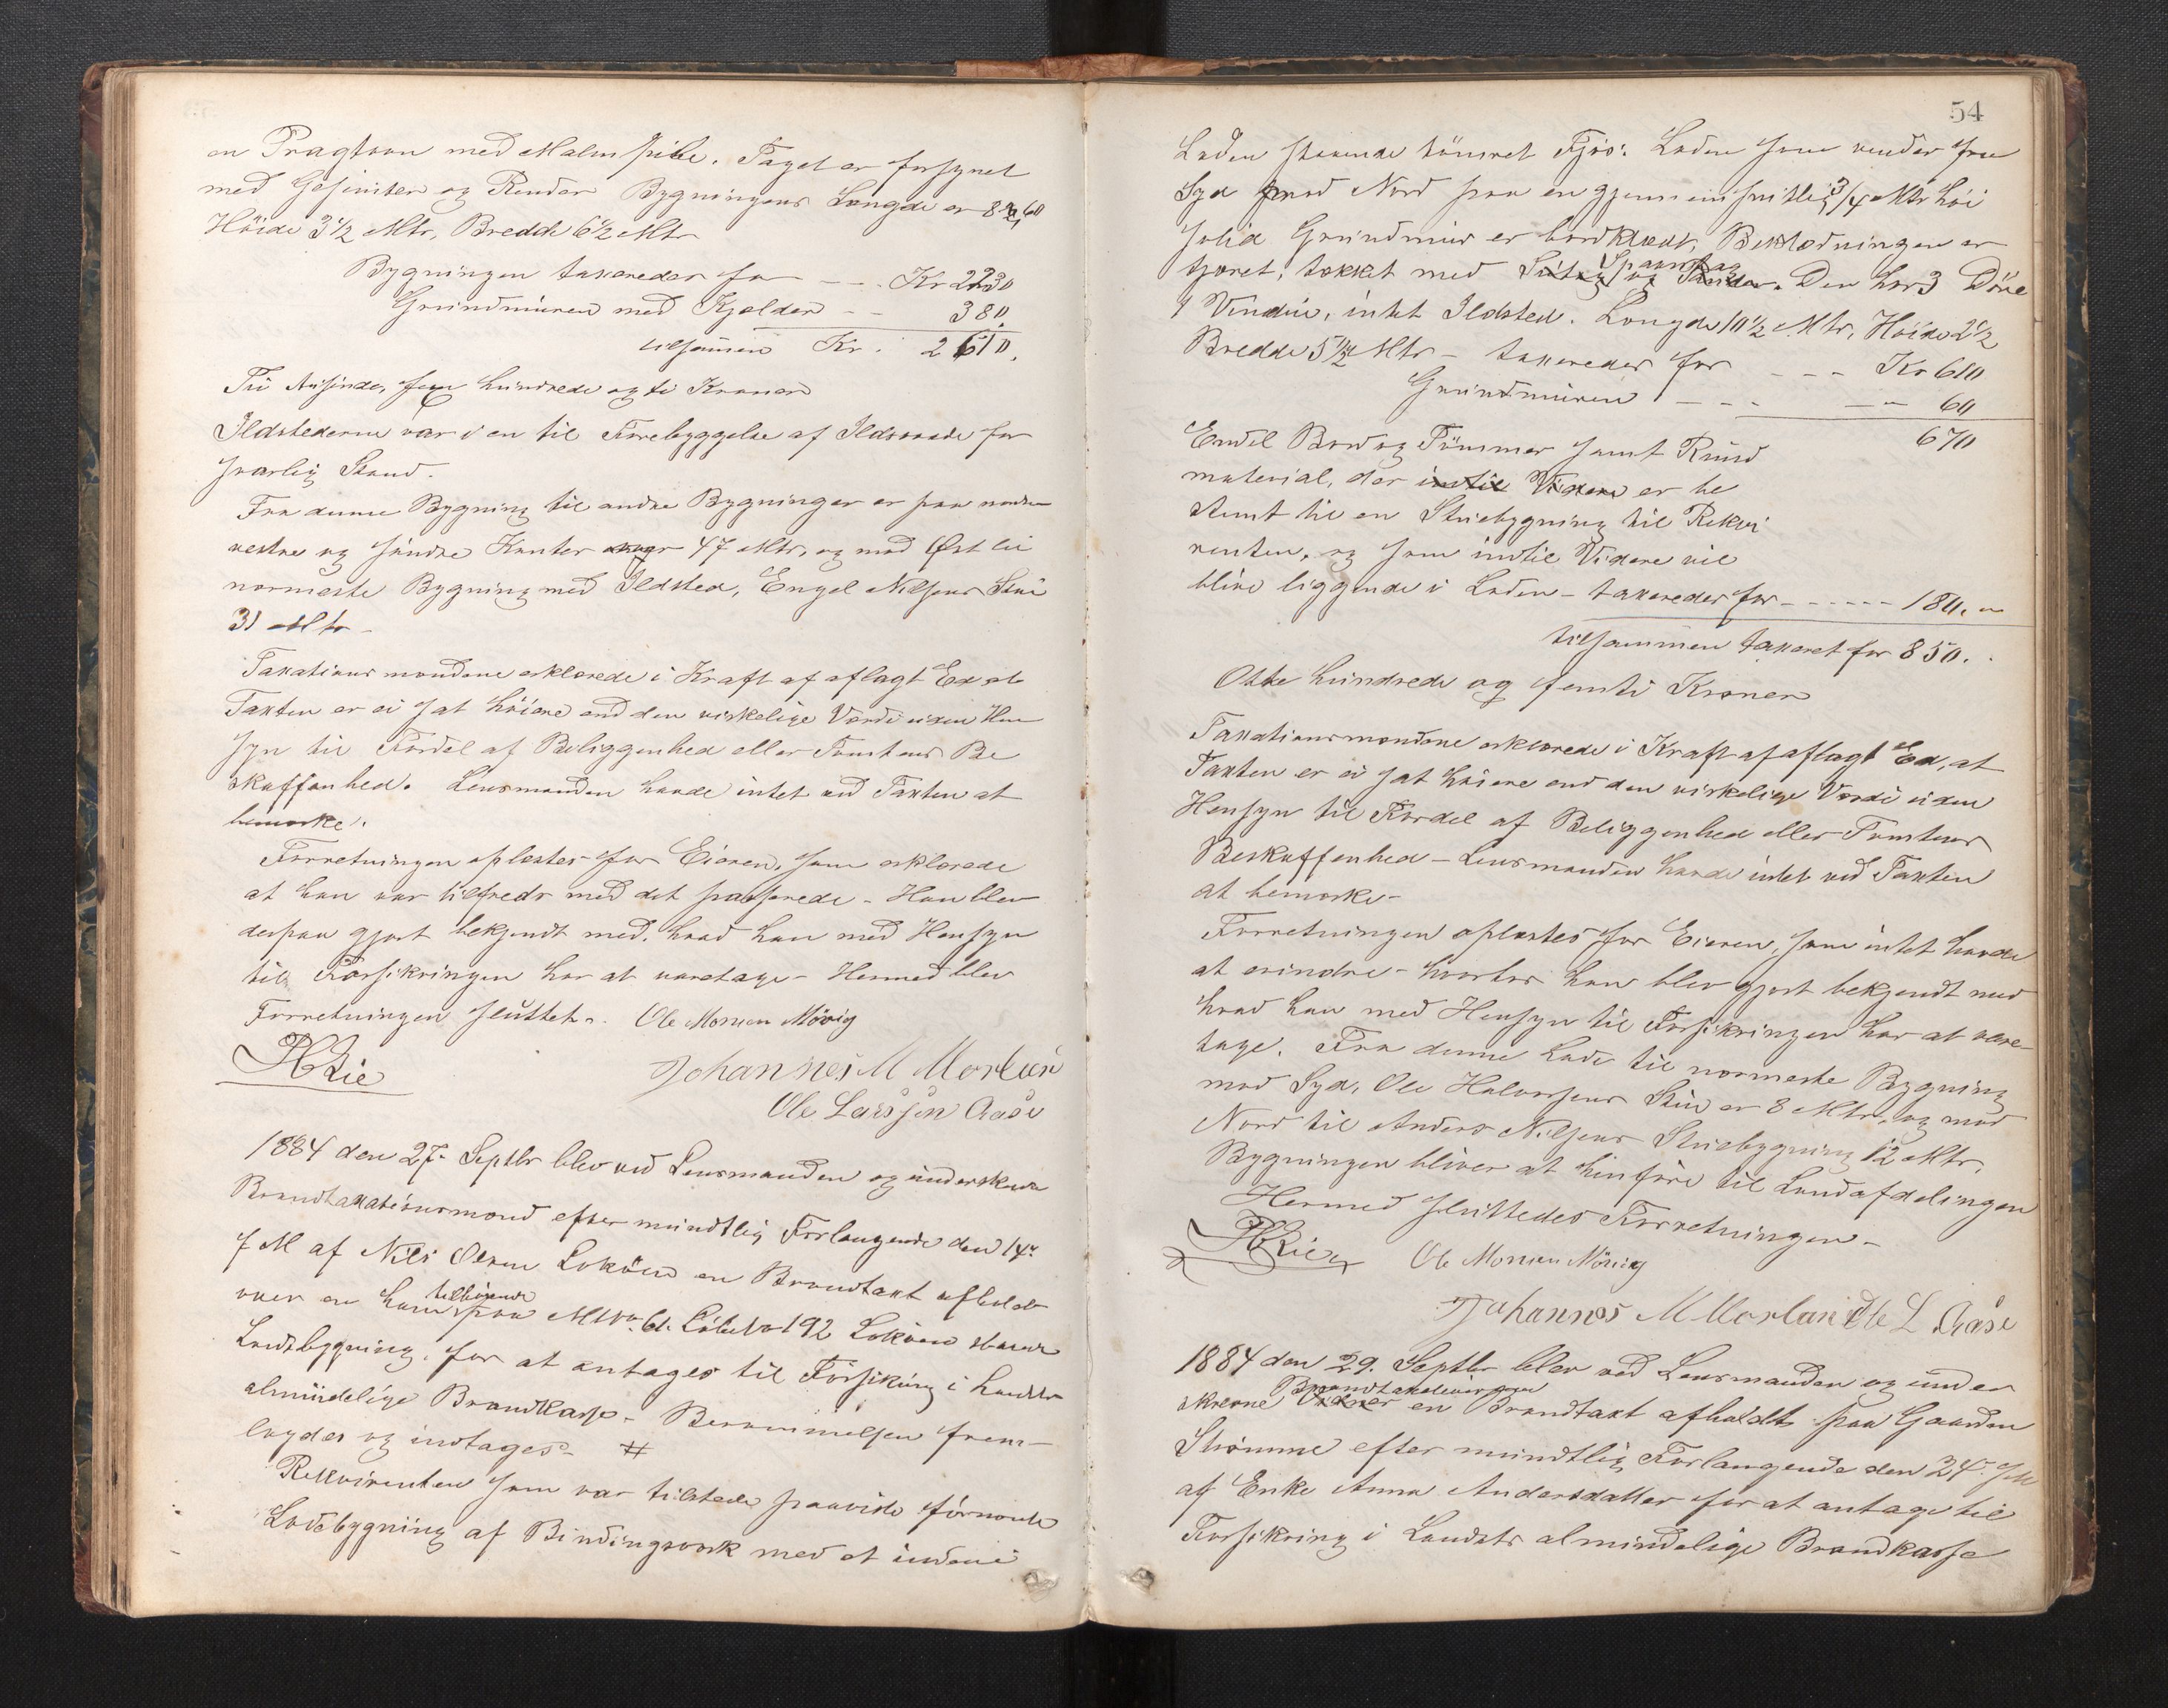 en Pragtovn med Malmpibe. Taget er forsynet
med Gesimser og Render Bygningens Længde er 8,60
Höide 3 1/2 Mtr, Bredde 6 1/2 Mtr
Bygningen taxeredes for - - Kr 2230
Grundmuren med Kjelder - - 380.
tilsammen Kr. 2610.
To tusinde, sex hundrede og ti Kroner
Ildstederne var i en til Forebyggelse af Ildsvaade for
svarlig Stand.
Fra denne Bygning til andre Bygninger er paa nordre
vestre og söndre Kanter 47 Mtr, og mod Öst til
nærmeste Bygning med Ildsted, Engel Nilsens Stue
31 Mtr -
Taxationsmændene erklærede i Kraft af aflagt Ed at
Taxten er ei sat höiere end den virkelige Værdi uden Hen
syn til Fordel af Beliggenhed eller Tomtens Be
skaffenhed. Lensmanden havde intet ved Taxten at
bemærke.
Forretningen oplæstes for Eieren, som erklærede
at han var tilfreds med det passerede - Han blev
derpaa gjort bekjendt med, hvad han med Hensyn
til Forsikringen har at varetage - Hermed blev
Forretningen sluttet. Ole Monsen Mövig
HRie
Johannes M Morland
Ole Larssen Aase
1884 den 27. Septbr blev ved Lensmanden og underskrevne
Brandtaxationsmænd efter mundtlig Forlangende den 14de
f M af Nils Olsen Loköen en Brandtaxt afholdt
over en ham tilhörende paa Mtr No 61. Löbe No 192 Loköen staaende
Ladebygning, for at antages til Forsikring i Landets
almindelige Brandkasse - Berammelsen frem-
lagdes og indtages - #
Rekvirenten som var tilstede paaviste fornævnte
Ladebygning af Bindingsværk med et indeni
54
Laden staaende tömret Fjös: Laden som vender fra
Syd mod Nord paa en gjennemsnitlig 3/4 Mtr höi
solid Grundmur er bordklædt, Beklædningen er
tjæret, tækket med Spaantag. Den har 3 Döre
1 Vindue, intet Ildsted. Længde 10 1/2 Mtr, Höide 2 1/2
Bredde 5 1/2 Mtr - taxeredes for - - - Kr 610
Grundmuren - - - - - 60
670
Endel Bord og Tömmer samt Rund
material, der er be
stemt til en Stuebygning til Rekvi
renten, og som indtil Videre vil
blive liggende i Laden - taxeredes for - - - - - - 180. -
tilsammen taxeret for 850.
Otte hundrede og femti Kroner
Taxationsmændene erklærede i Kraft af aflagt Ed, at
Taxten er ei sat höiere end den virkelige Værdi uden
Hensyn til Fordel af Beliggenhed eller Tomtens
Beskaffenhed - Lensmanden havde intet ved Taxten
at bemærke -
Forretningen oplæstes for Eieren, som intet havde
at erindre - hvorhos han blev gjort bekjendt med
hvad han med Hensyn til Forsikringen har at vare-
tage. Fra denne Lade til nærmeste Bygning
mod Syd, Ole Halvorsens Stue er 8 Mtr, og mod
Nord til Anders Nilsens Stuebygning 12 Mtr.
Bygningen bliver at henföre til Landafdelingen
Hermed sluttedes Forretningen -
HRie Ole Monsen Mövig
Johannes M Morland Ole L Aase
1884 den 29. Septbr blev ved Lensmanden og under
skrevne Brandtaxationsmænd en Brandtaxt afholdt paa Gaarden
Strömme efter mundtlig Forlangende den 24. f M
af Enke Anna Andersdatter for at antage til
Forsikring i Landets almindelige Brandkasse